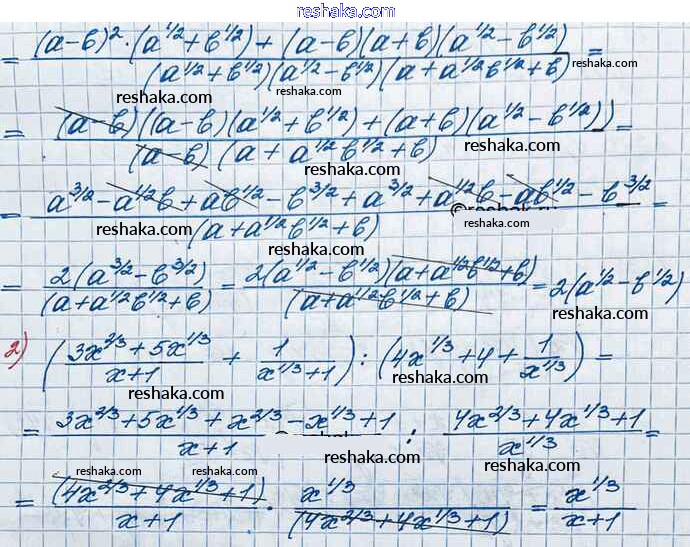 reshaka.ru
= ((a-b)²·(a^{1/2}+b^{1/2})+(a-b)(a+b)(a^{1/2}-b^{1/2}))/((a^{1/2}+b^{1/2})(a^{1/2}-b^{1/2})(a+a^{1/2}b^{1/2}+b)) =
reshaka.com reshaka.com reshaka.com
= ((a-b)((a-b)(a^{1/2}+b^{1/2})+(a+b)(a^{1/2}-b^{1/2})))/((a-b)(a+a^{1/2}b^{1/2}+b)) =
reshaka.com reshaka.com
= (a^{3/2}-a^{1/2}b+ab^{1/2}-b^{3/2}+a^{3/2}+a^{1/2}b-ab^{1/2}-b^{3/2})/((a+a^{1/2}b^{1/2}+b)) =
reshaka.com reshaka.com
= 2(a^{3/2}-b^{3/2})/(a+a^{1/2}b^{1/2}+b) = 2(a^{1/2}-b^{1/2})(a+a^{1/2}b^{1/2}+b)/(a+a^{1/2}b^{1/2}+b) = 2(a^{1/2}-b^{1/2})
reshaka.com reshaka.com reshaka.com
2) ((3x^{2/3}+5x^{1/3})/(x+1) + 1/(x^{1/3}+1)) : (4x^{1/3}+4+1/x^{1/3}) =
reshaka.com reshaka.com
= (3x^{2/3}+5x^{1/3}+x^{2/3}-x^{1/3}+1)/(x+1) : (4x^{2/3}+4x^{1/3}+1)/x^{1/3} =
reshaka.com reshaka.com reshaka.com
reshaka.com reshaka.com
= (4x^{2/3}+4x^{1/3}+1)/(x+1) · x^{1/3}/(4x^{2/3}+4x^{1/3}+1) = x^{1/3}/(x+1)
reshaka.com reshaka.com